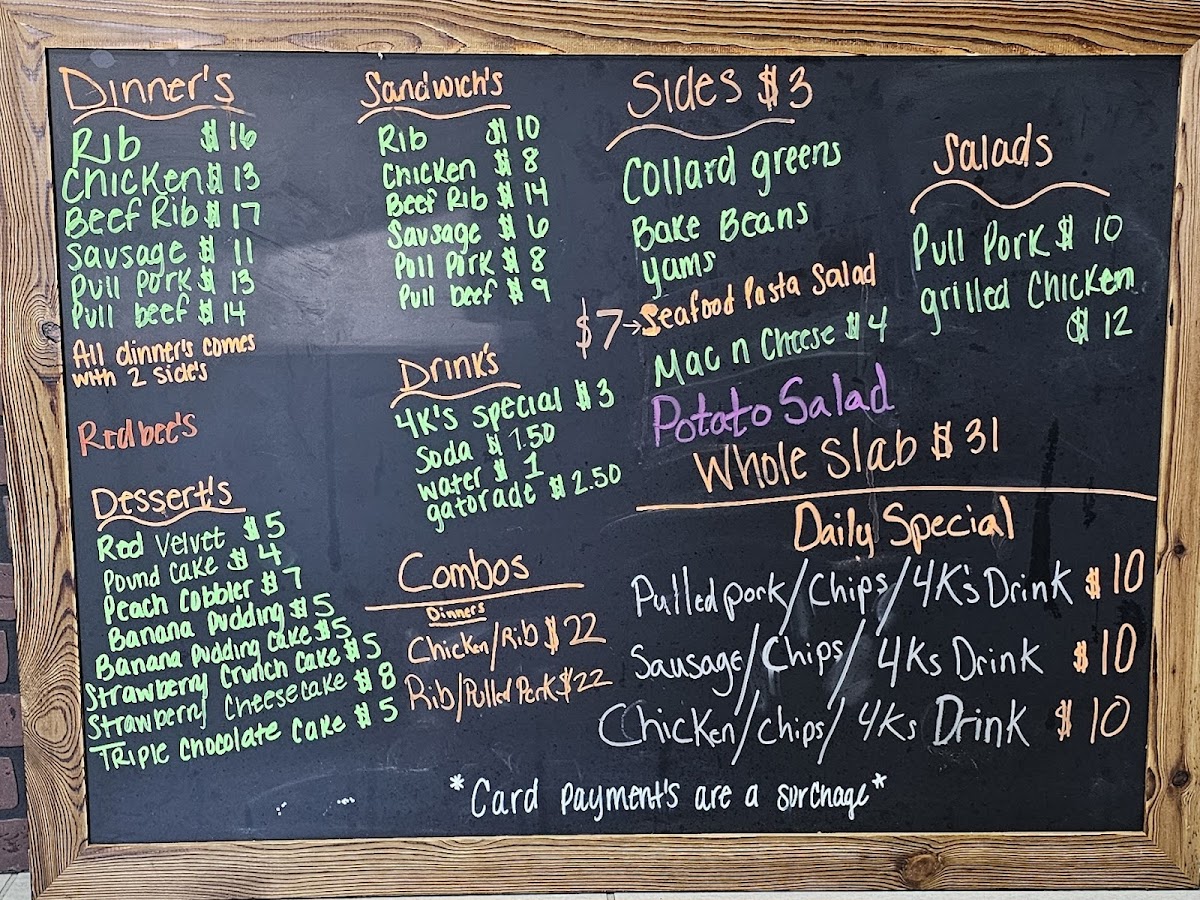 Dinner's
Rib $16
Chicken $13
Beef Rib $17
Sausage $11
Pull Pork $13
Pull beef $14
All dinner's comes
with 2 side's
Redbee's
Dessert's
Red Velvet $5
Pound Cake $4
Peach Cobbler $7
Banana Pudding $5
Banana Pudding Cake $5
Strawberry Crunch Cake $5
Strawberry Cheesecake $8
Triple Chocolate Cake $5
Sandwich's
Rib $10
Chicken $8
Beef Rib $14
Sausage $6
Pull Pork $8
Pull beef $9
Drink's
4K's special $3
Soda $1.50
water $1
gatorade $2.50
Combos
Dinners
Chicken/Rib $22
Rib/Pulled Pork $22
Sides $3
Collard greens
Bake Beans
Yams
$7→Seafood Pasta Salad
Mac n Cheese $4
Potato Salad
Whole Slab $31
Salads
Pull Pork $10
grilled Chicken
$12
Daily Special
Pulled pork/Chips/4K's Drink $10
Sausage/Chips/4Ks Drink $10
Chicken/Chips/4Ks Drink $10
*Card payment's are a surchage*